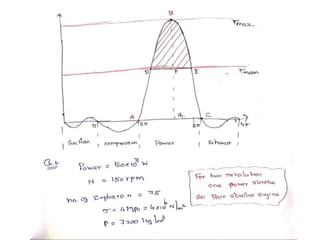 B
Tmax
D F E
Tmean
A G C
π 2π 3π 4π
Suction compression Power Exhaust
Power = 150×10³ W
N = 150 rpm
no. of Explosion = 75
σ = 4 Mpa = 4×10⁶ N/m²
ρ = 7200 kg/m³
For two revolution
one power stroke
So Four stroke engine